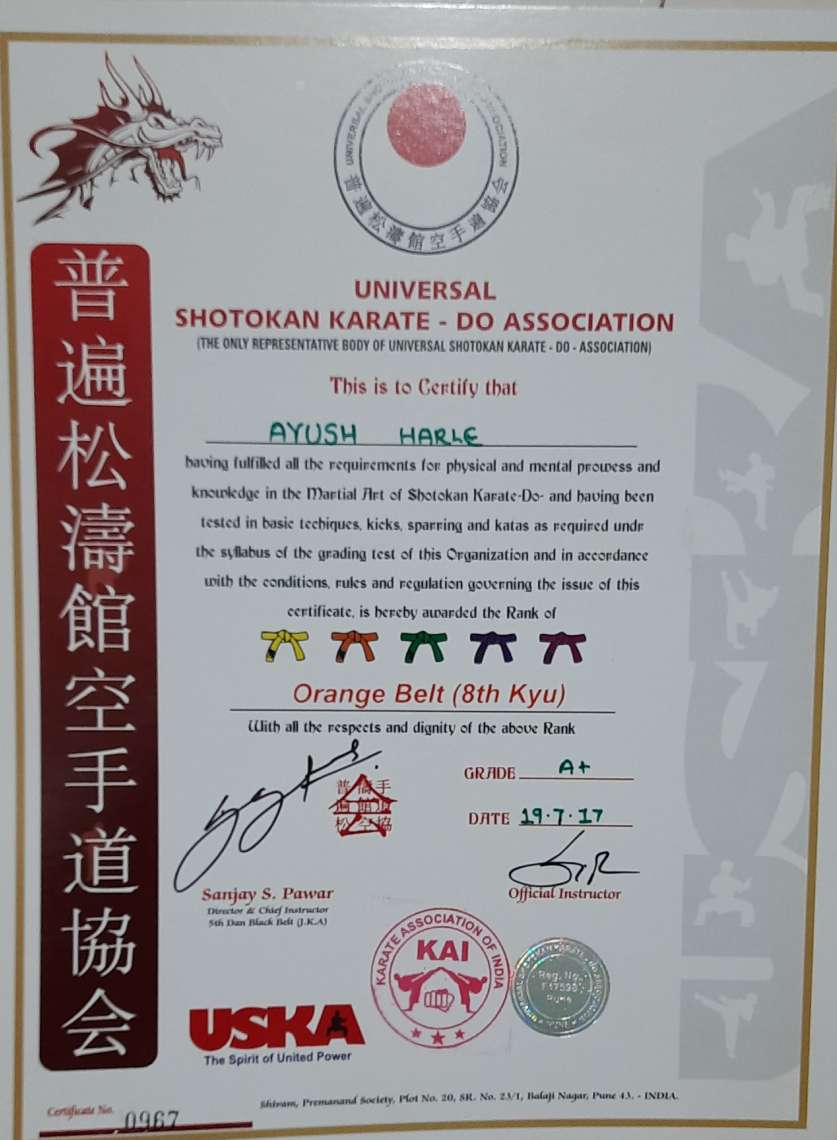 UNIVERSAL SHOTOKAN KARATE - DO ASSOCIATION
普遍松濤館空手道協会
普遍松濤館空手道協会
UNIVERSAL
SHOTOKAN KARATE - DO ASSOCIATION
(THE ONLY REPRESENTATIVE BODY OF UNIVERSAL SHOTOKAN KARATE - DO - ASSOCIATION)
This is to Certify that
AYUSH HARLE
having fulfilled all the requirements for physical and mental prowess and
knowledge in the Martial Art of Shotokan Karate-Do- and having been
tested in basic techiques, kicks, sparring and katas as required undr
the syllabus of the grading test of this Organization and in accordance
with the conditions, rules and regulation governing the issue of this
certificate, is hereby awarded the Rank of
Orange Belt (8th Kyu)
With all the respects and dignity of the above Rank
GRADE A+
DATE 19.7.17
Sanjay S. Pawar
Director & Chief Instructor
5th Dan Black Belt (J.K.A)
Official Instructor
KARATE ASSOCIATION OF INDIA
KAI
Reg. No.
Pune
USKA
The Spirit of United Power
Certificate No. 0967
Shivam, Premanand Society, Plot No. 20, SR. No. 23/1, Balaji Nagar, Pune 43. - INDIA.